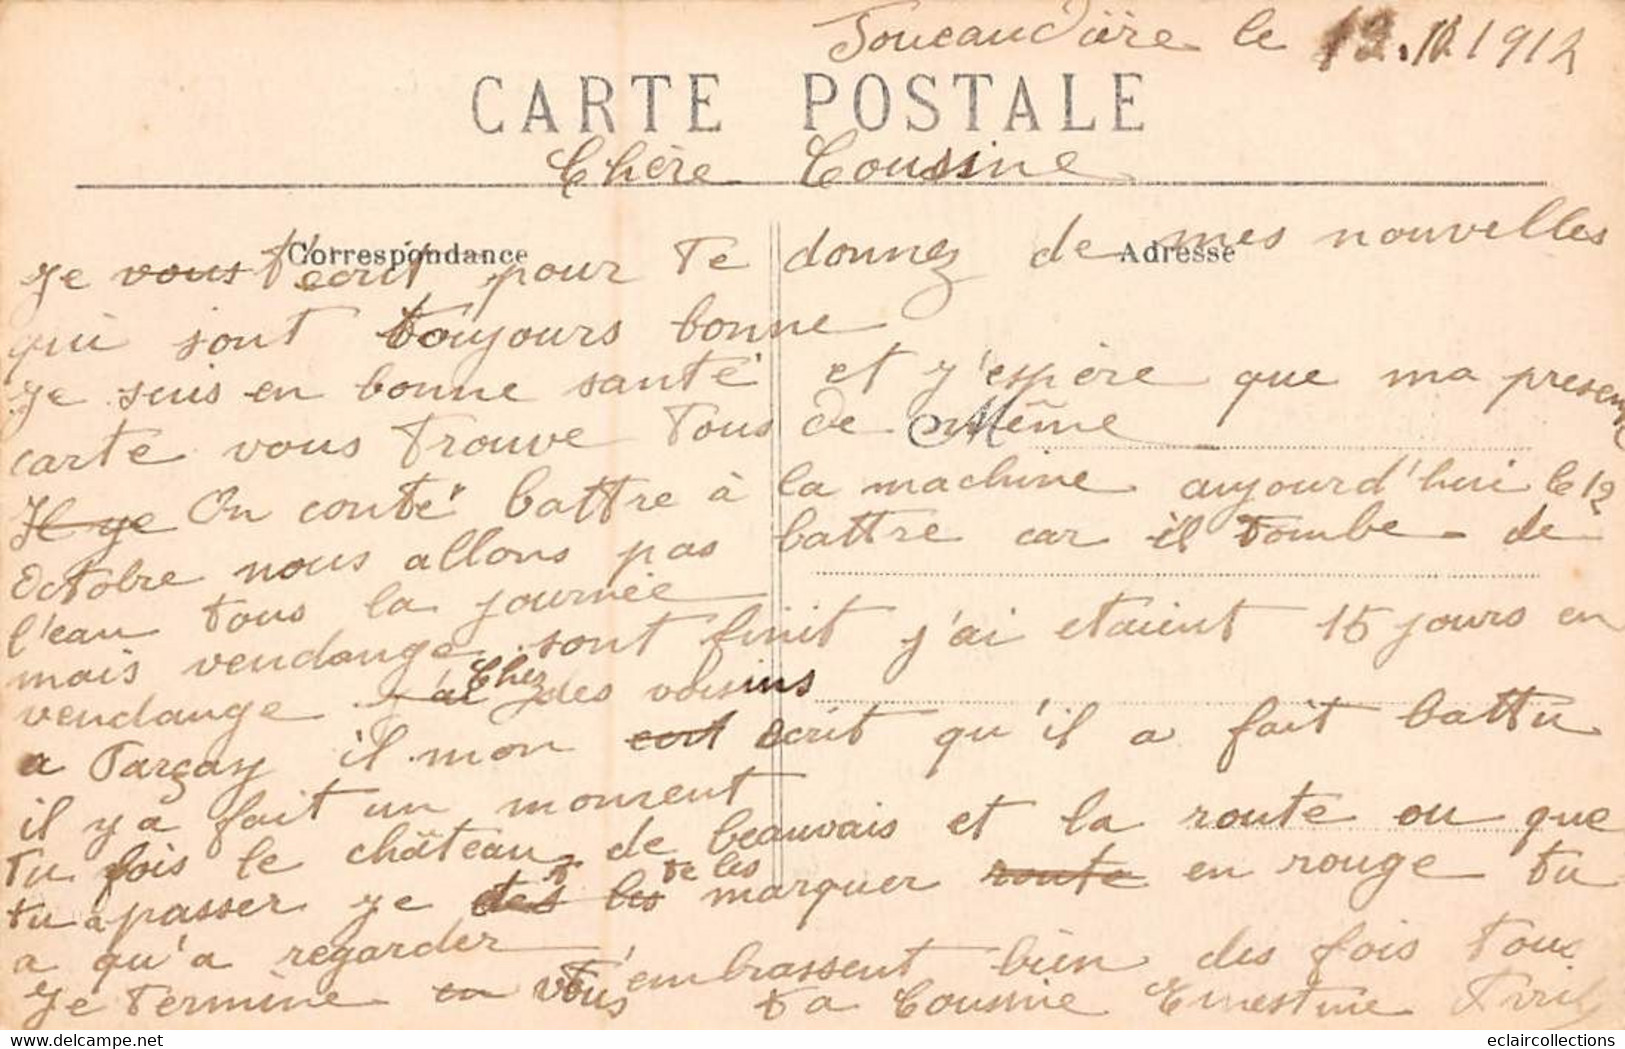 le 12.10.1912
CARTE POSTALE
Chère Cousine
Correspondance
Adresse
Je vous t'écrit pour te donnez de mes nouvelles
qui sont toujours bonne
Je suis en bonne santé et j'espère que ma present
carte vous trouve tous de même
Il ye On conté battre à la machine aujourd'hui le 12
Octobre nous allons pas battre car il tombe de
l'eau tous la journée
mais vendange sont finit j'ai etaient 15 jours en
vendange j'ai Chez des voisins
a Parçay il mon ecrit qu'il a fait battu
il y a fait un moment
Tu fois le château de beauvais et la route ou que
tu a passer je te les marquer route en rouge tu
a qu'a regarder
Je termine en vous t'embrassent bien des fois tous
ta Cousine Ernestine
eclaircollections